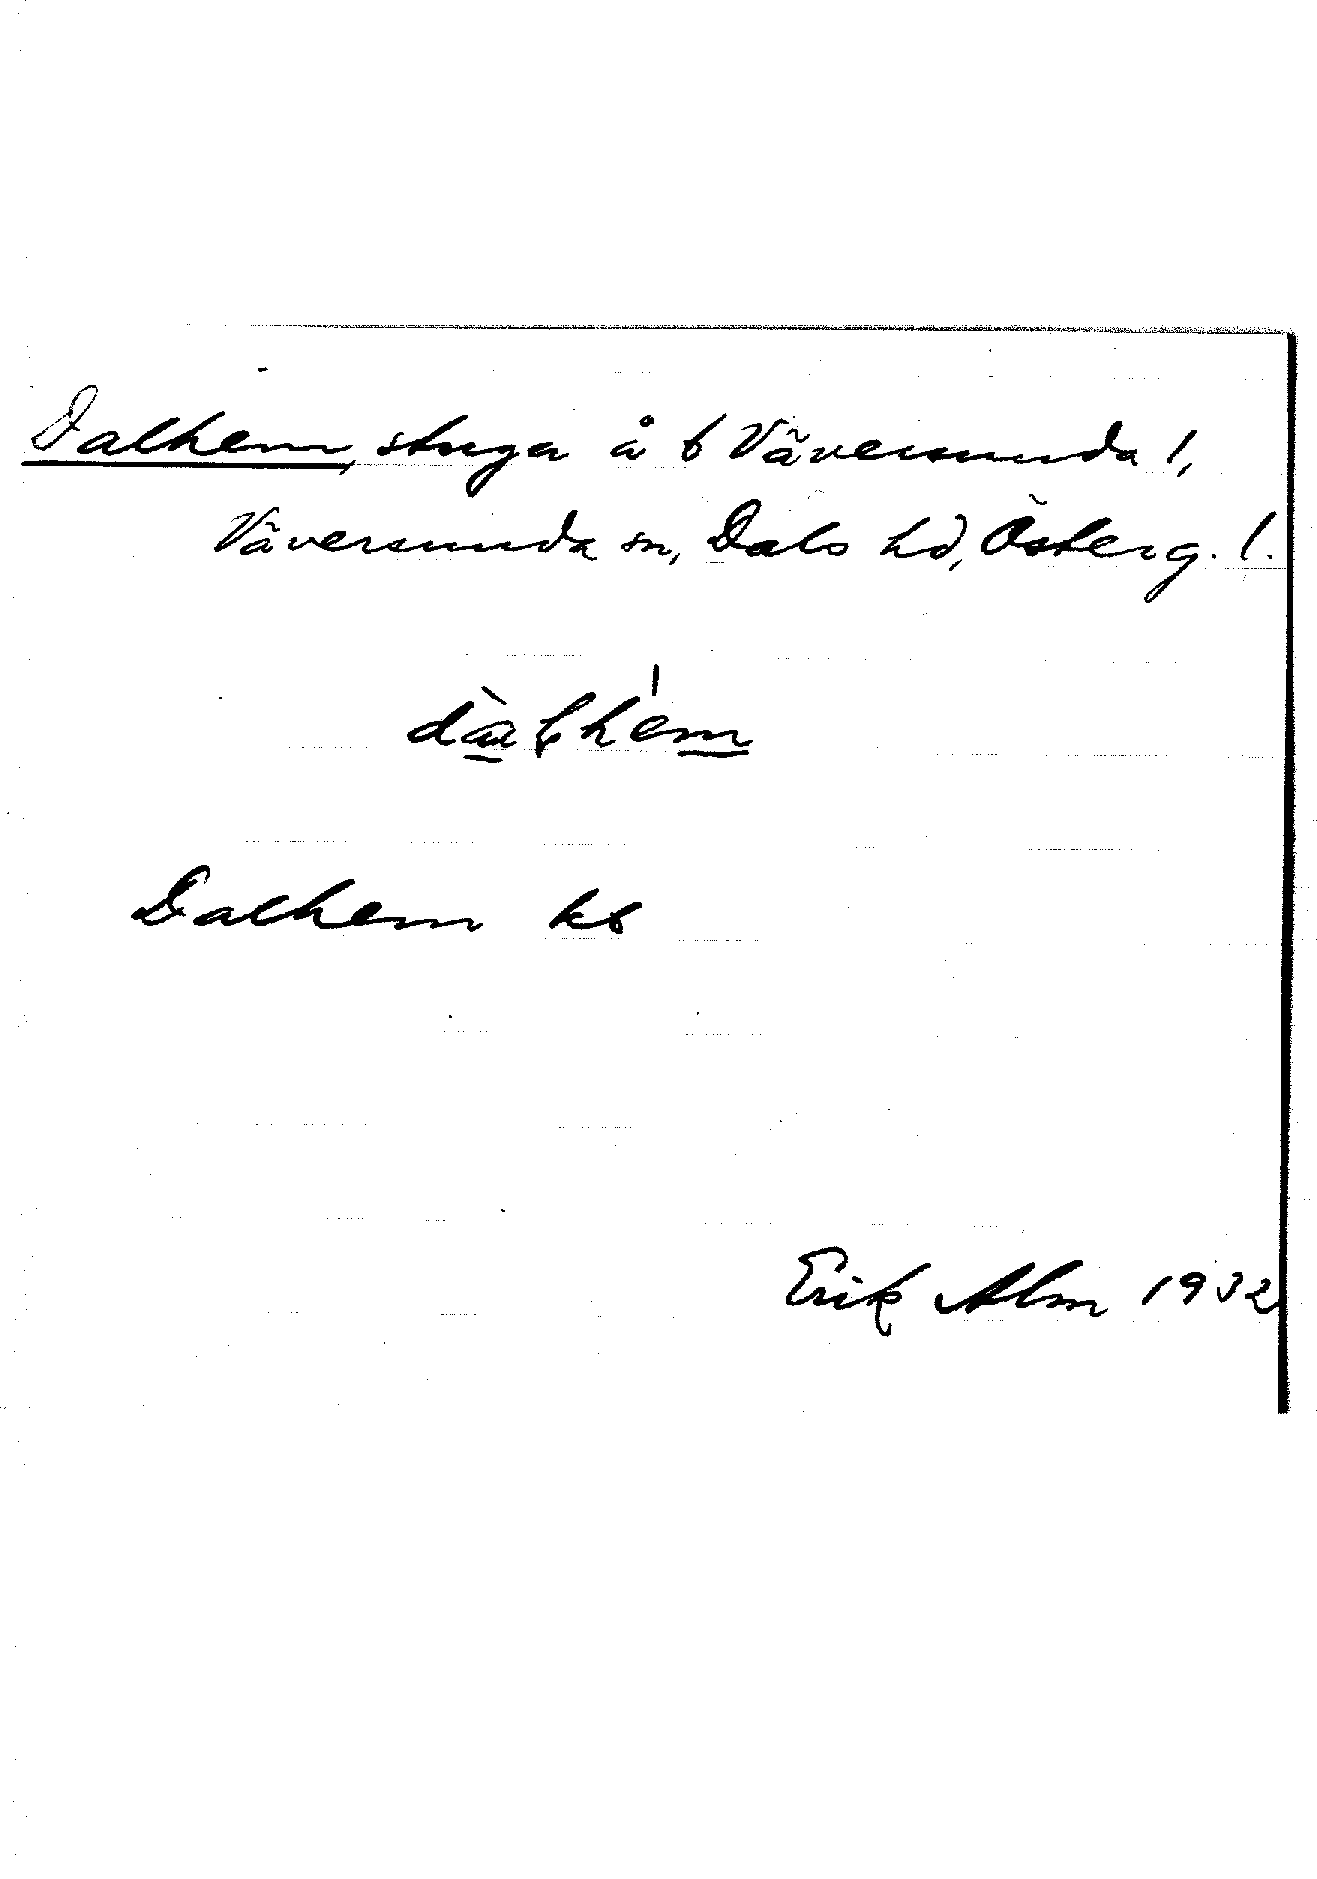 Dalhem, stuga å b Väversunda l,
Väversunda sn, Dals hd, Österg. l.
Dalhem kb
Erik Alm 1932